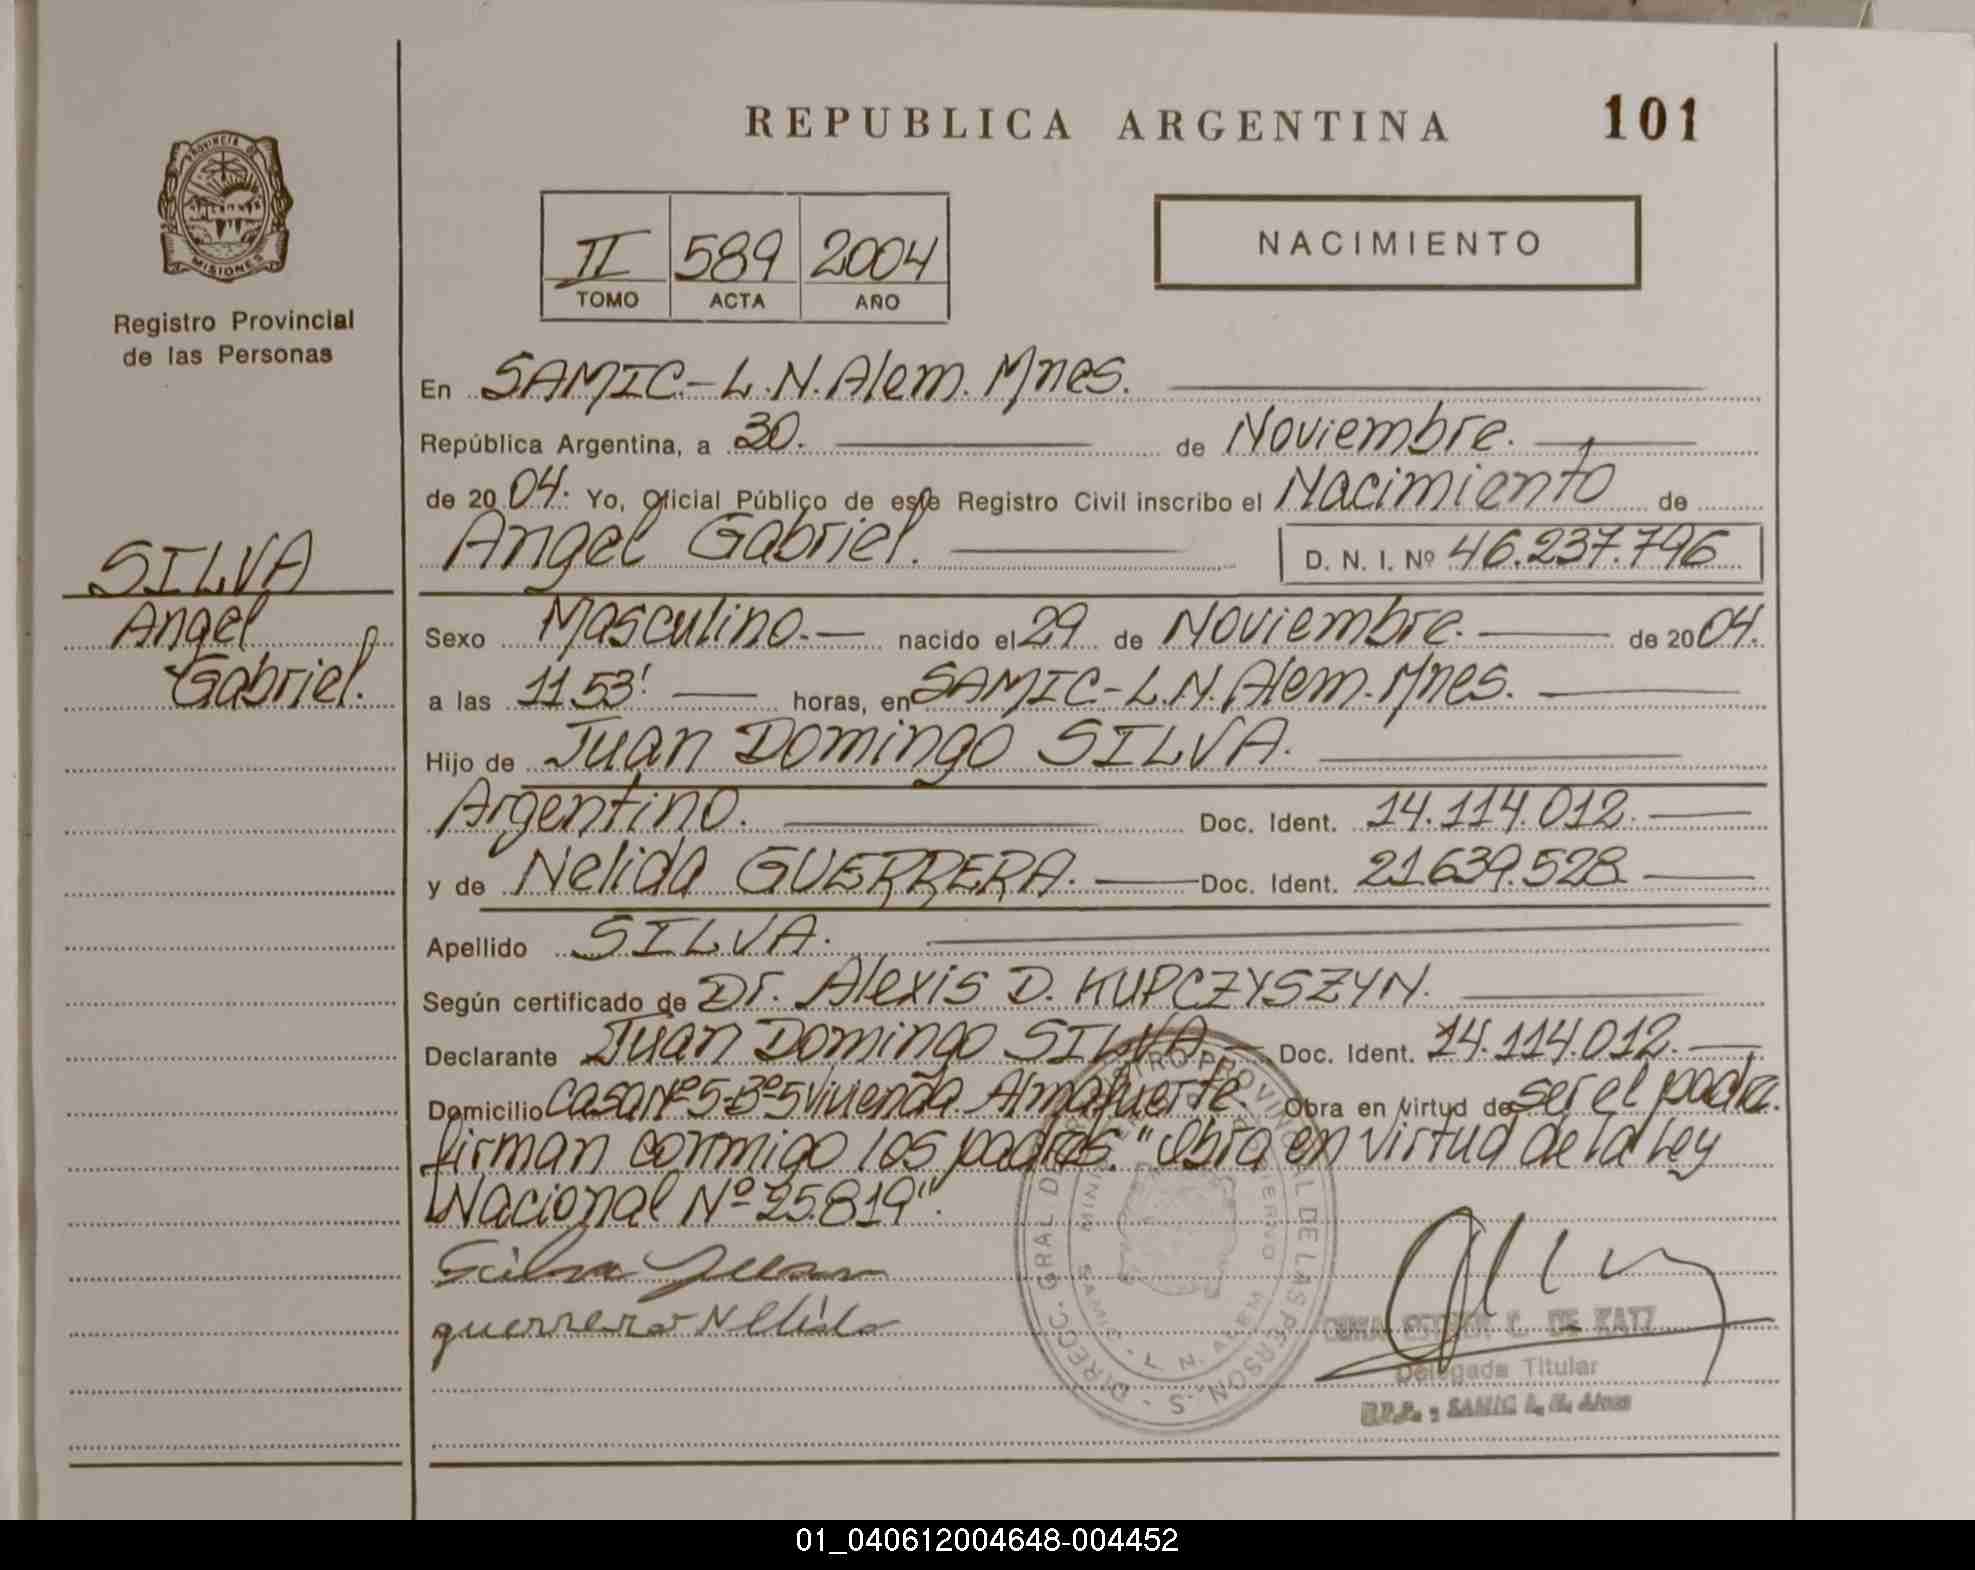 REPUBLICA ARGENTINA
101
PROVINCIA DE
MISIONES
Registro Provincial
de las Personas
II 589 2004
TOMO ACTA AÑO
NACIMIENTO
En SAMIC-L.N.Alem.Mnes.
República Argentina, a 30. de Noviembre.
de 20 04. Yo, Oficial Público de este Registro Civil inscribo el Nacimiento de
Angel Gabriel. D. N. I. Nº 46.237.796
SILVA
Angel
Gabriel.
Sexo Masculino.- nacido el 29 de Noviembre. de 20 04.
a las 11.53' horas, en SAMIC-L.N.Alem.Mnes.
Hijo de Juan Domingo SILVA.
Argentino. Doc. Ident. 14.114.012.
y de Nelida GUERRERA. Doc. Ident. 21.639.528
Apellido SILVA.
Según certificado de Dr. Alexis D. KUPCZYSZYN.
Declarante Juan Domingo SILVA.- Doc. Ident. 14.114.012.
Domicilio Casa Nº5-Bº5 Vivenda. Almafuerte. Obra en virtud de ser el padre.
firman conmigo los padres. "Obra en virtud de la Ley
Nacional Nº 25.819".
Silva Juan
guerrera Nelida
DIRECC. GRAL DE REGISTRO PROVINCIAL DE LAS PERSONAS
SAMIC - L. N. ALEM
DE KATZ
Delegada Titular
R.P.P. - SAMIC L. N. Alem
01_040612004648-004452